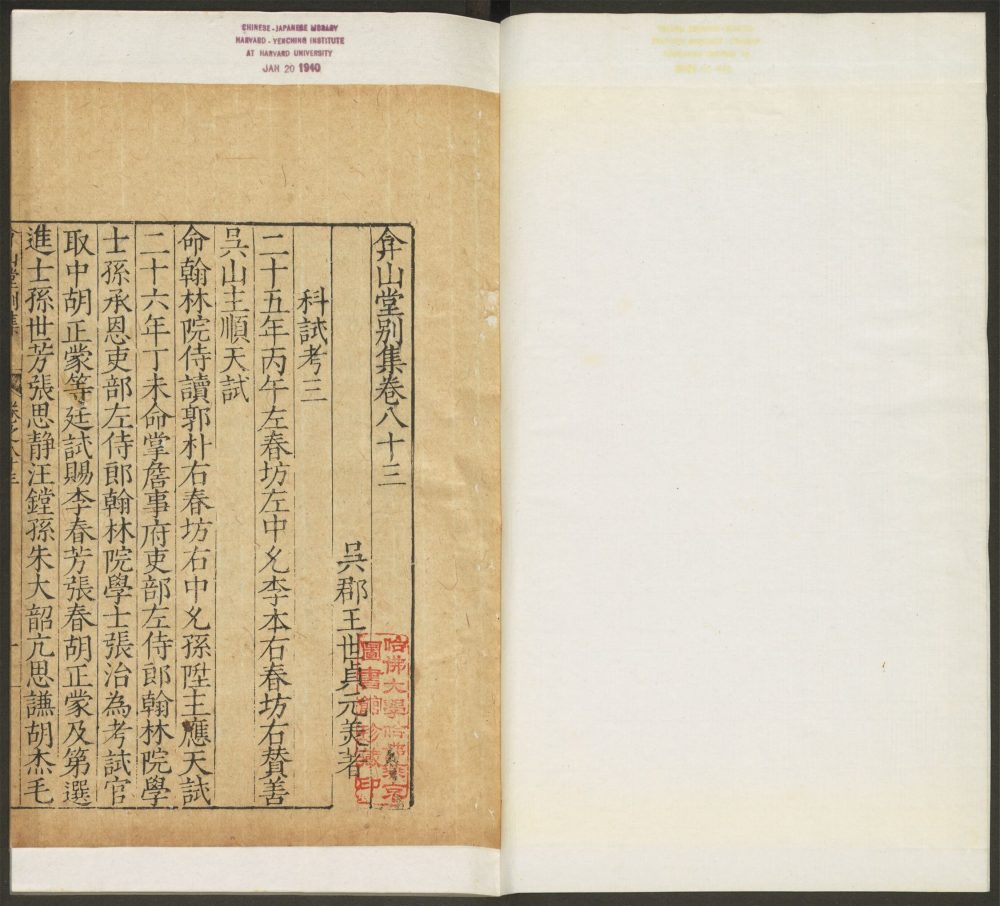 CHINESE-JAPANESE LIBRARY
HARVARD-YENCHING INSTITUTE
AT HARVARD UNIVERSITY
JAN 20 1940
弇山堂别集卷八十三
吳郡王世貞元美著
科試考三
二十五年丙午左春坊左中允李本右春坊右贊善
吳山主順天試
命翰林院侍讀郭朴右春坊右中允孫陞主應天試
二十六年丁未命掌詹事府吏部左侍郎翰林院學
士孫承恩吏部左侍郎翰林院學士張治為考試官
取中胡正蒙等廷試賜李春芳張春胡正蒙及第選
進士孫世芳張思静汪鏜孫朱大韶亢思謙胡杰毛
哈佛大學哈佛燕京
圖書館珍藏印